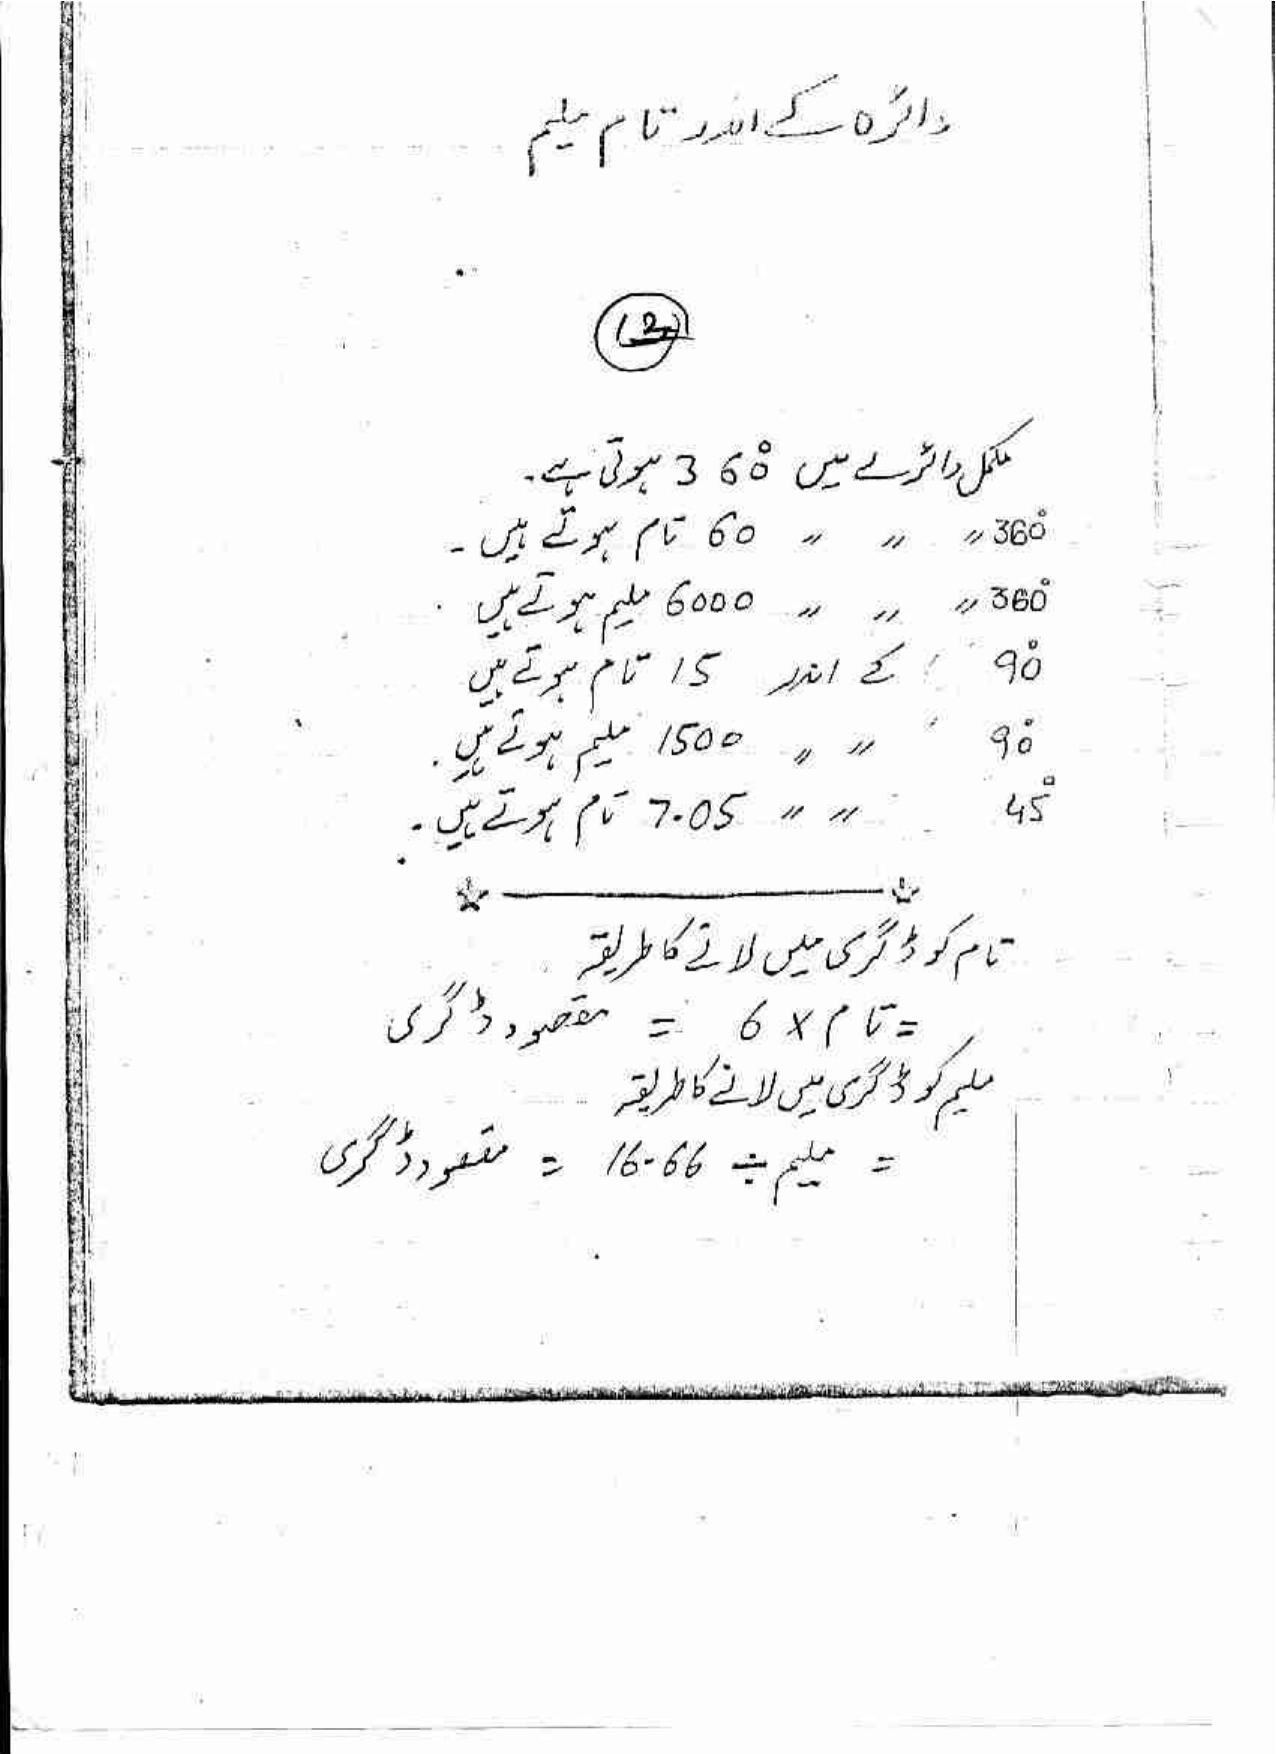 دائرہ کے اندر تام ملیم
(2)
مکمل دائرے میں 360° ہوتی ہے۔
360° 〃 〃 〃 60 تام ہوتے ہیں۔
360° 〃 〃 〃 6000 ملیم ہوتے ہیں۔
90° کے اندر 15 تام ہوتے ہیں
90° 〃 〃 1500 ملیم ہوتے ہیں۔
45° 〃 〃 7.05 تام ہوتے ہیں۔
تام کو ڈگری میں لانے کا طریقہ
= تام × 6 = مقصود ڈگری
ملیم کو ڈگری میں لانے کا طریقہ
= ملیم ÷ 16.66 = مقصود ڈگری